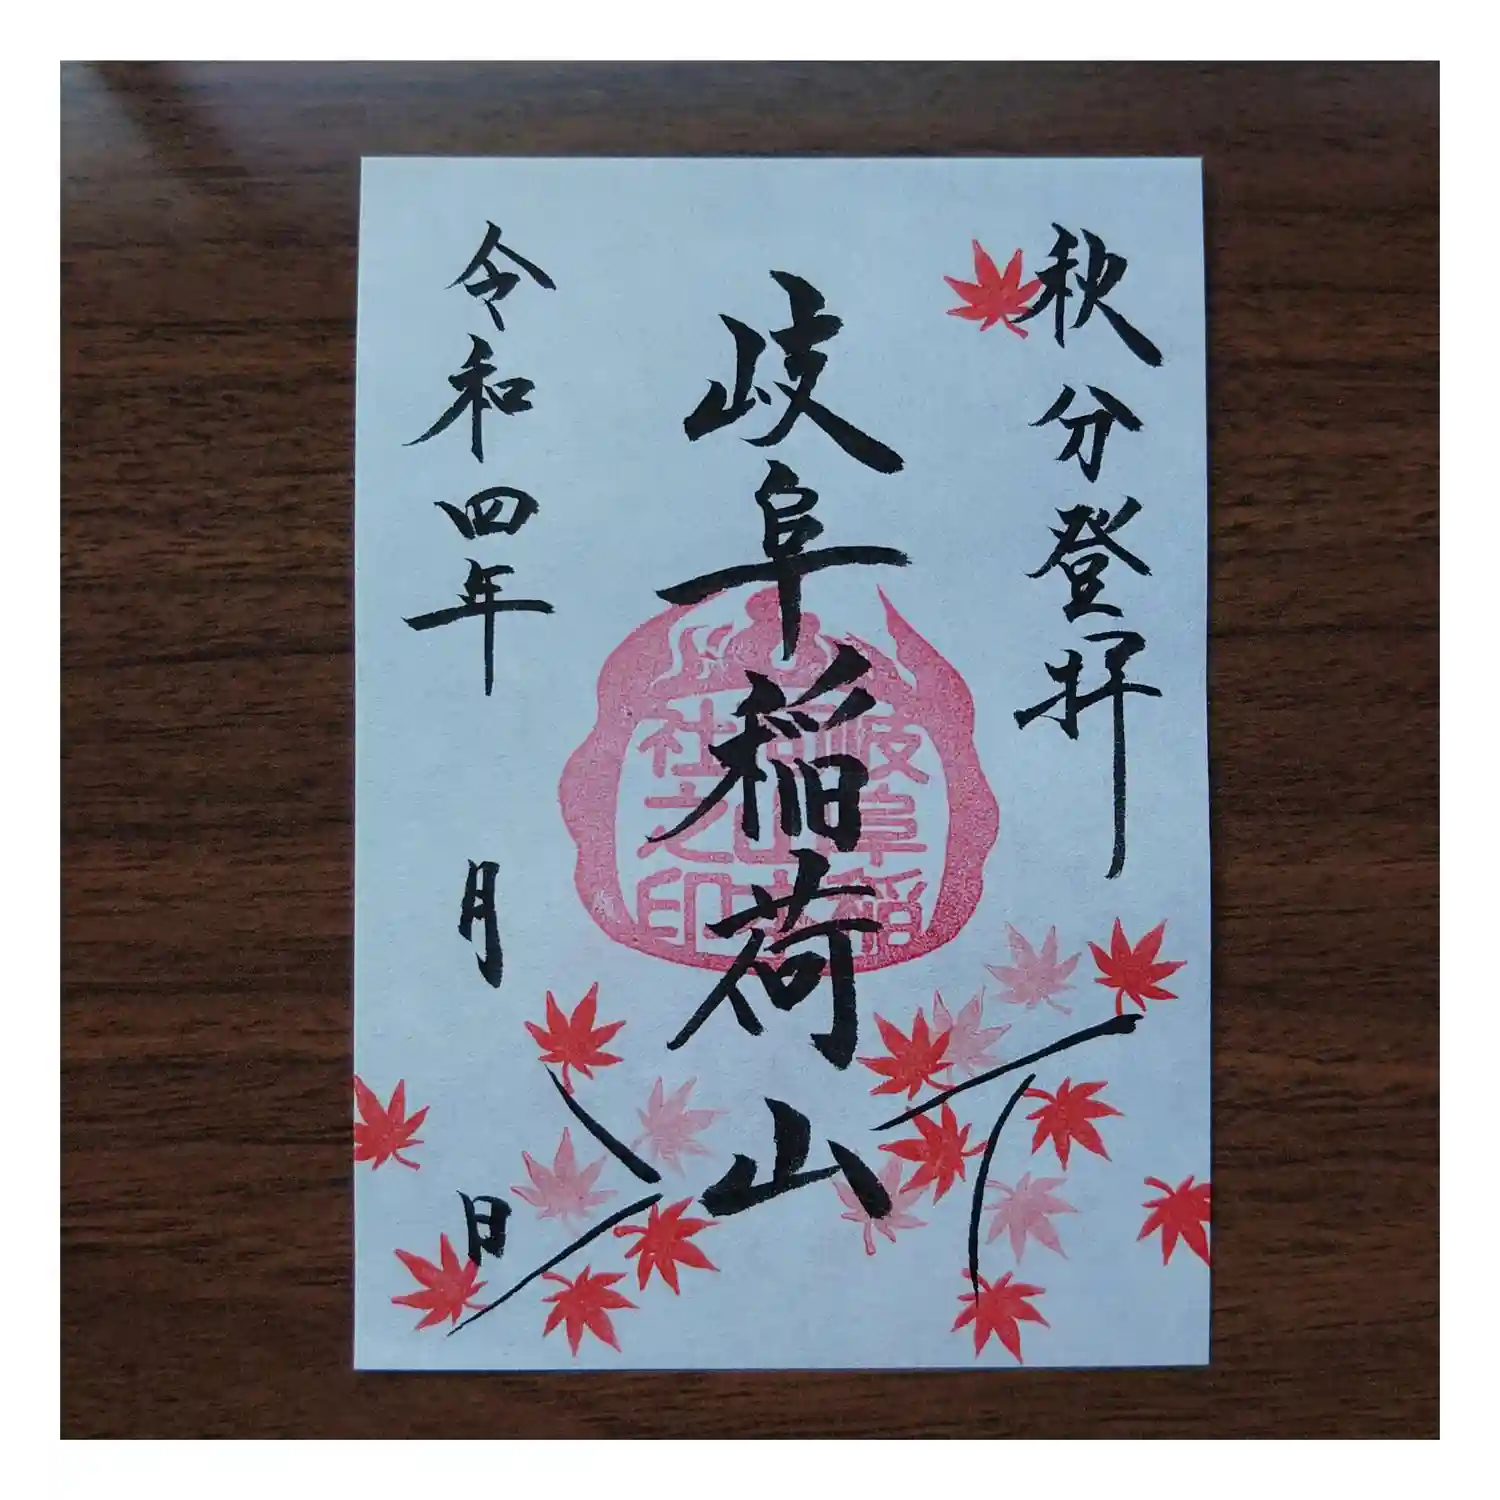 秋分登拝
岐阜稲荷山
令和四年 月 日
岐阜稲
社之印